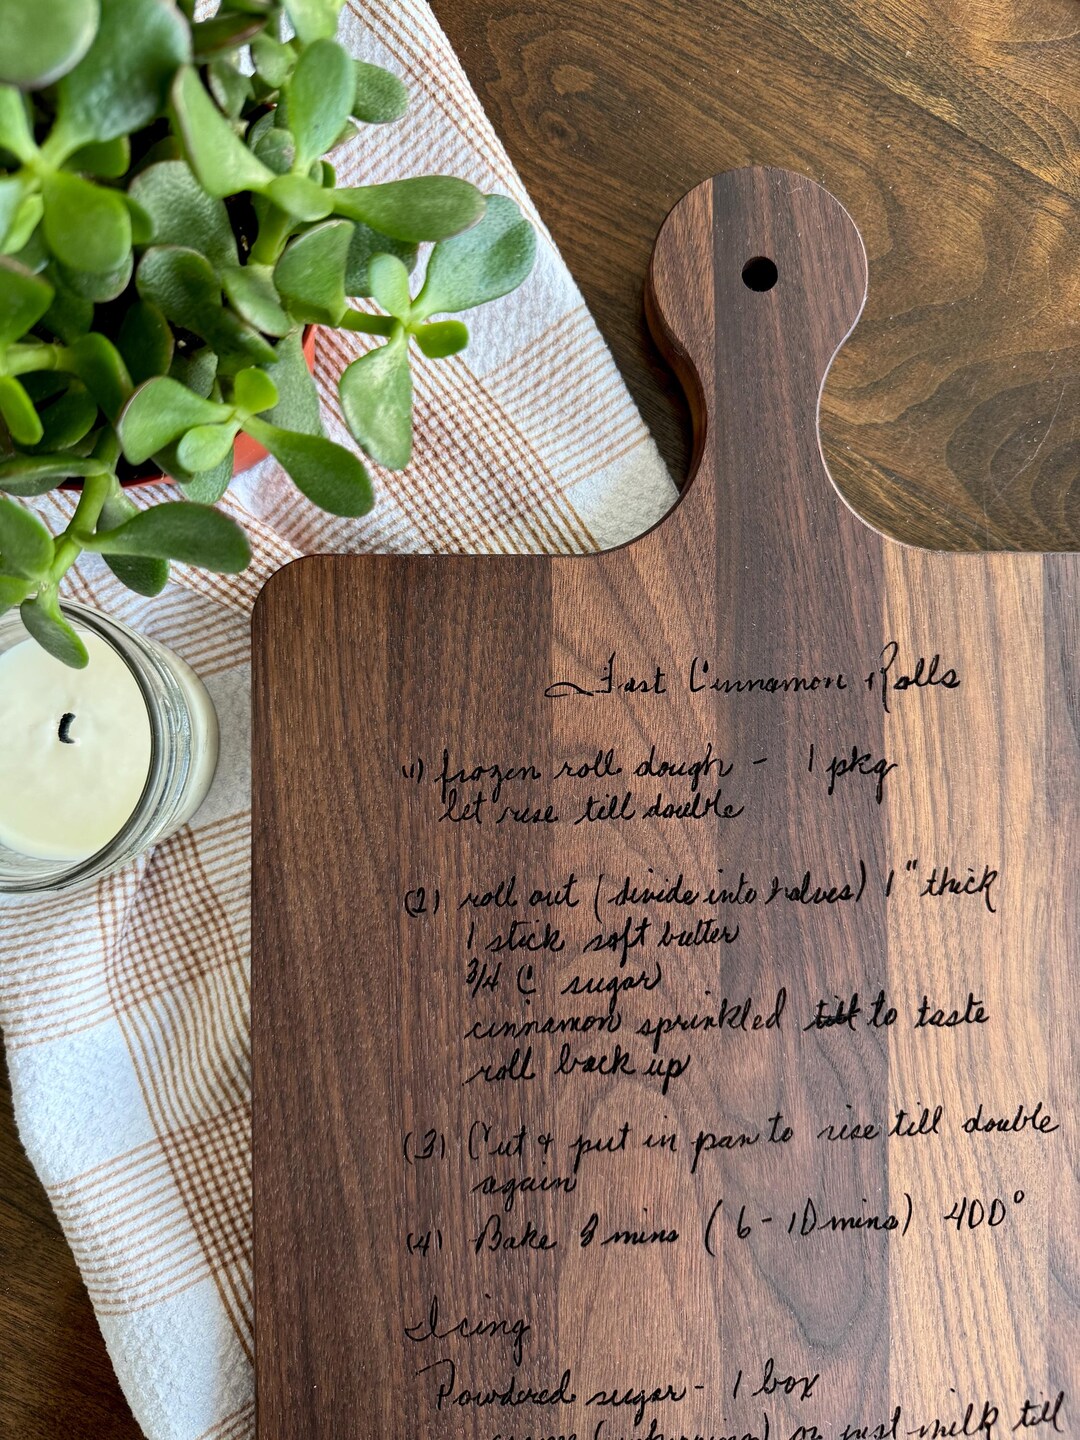 Fast Cinnamon Rolls
(1) frozen roll dough - 1 pkg
let rise till double
(2) roll out (divide into halves) 1" thick
1 stick soft butter
3/4 C sugar
cinnamon sprinkled till to taste
roll back up
(3) Cut & put in pan to rise till double
again
(4) Bake 8 mins (6-10 mins) 400°
Icing
Powdered sugar - 1 box
or just milk till